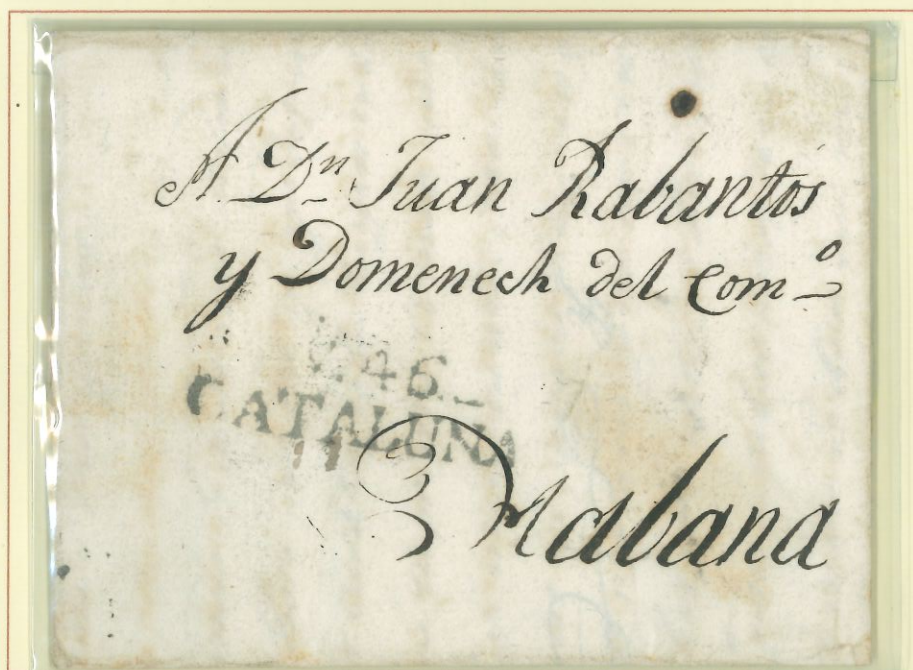 A Dn Juan Rabantós
y Domenech del Comº
46
CATALUNA
Habana